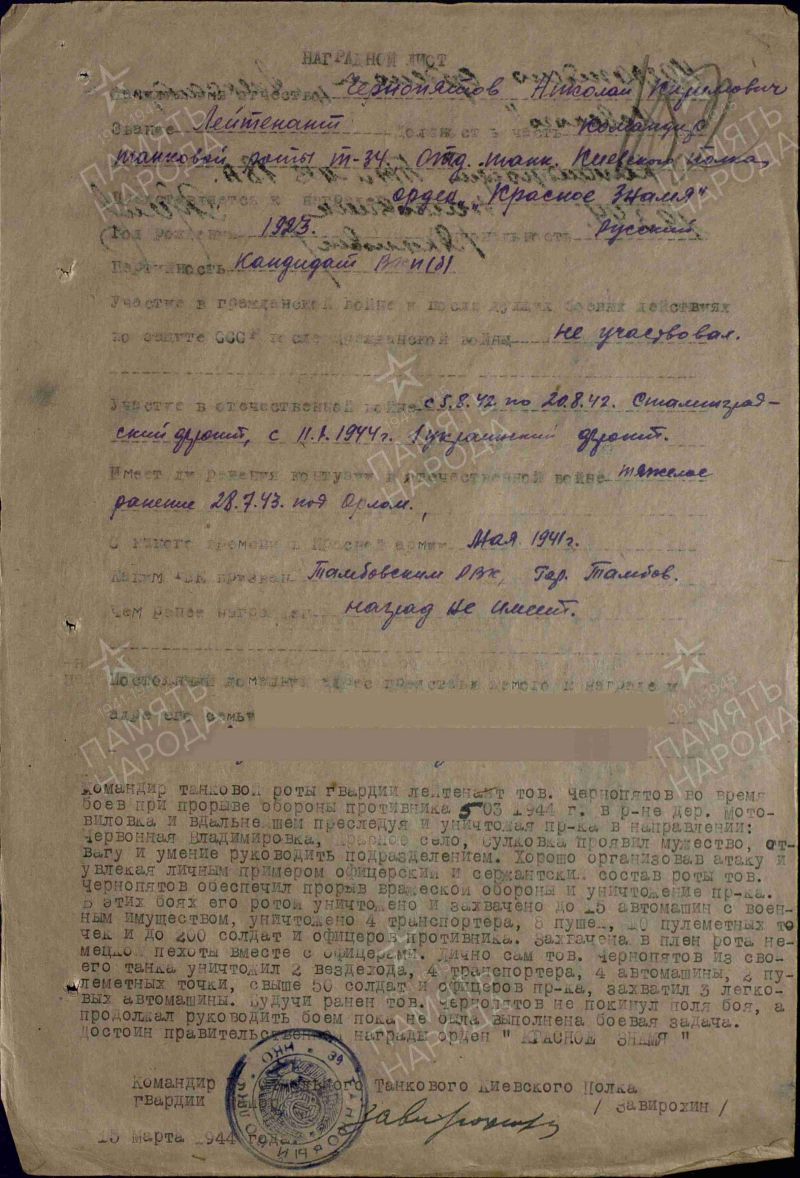 НАГРАДНОЙ ЛИСТ
Чернопятов Николай
Звание Лейтенант Должность часть Командир
танковой роты Т-34. Отд. танк. Киевского полка,
орден „Красное Знамя"
Год рождения 1923. Русский.
Партийность Кандидат ВКП(б)
Участие в гражданской войне и последующих боевых действиях
по защите СССР после гражданской войны не участвовал.
Участие в отечественной войне с 5.8.42 по 20.8.42. Сталинград-
ский фронт, с 11.1.1944г. 1 украинский фронт.
Имеет ли ранения контузии в отечественной войне тяжелое
ранение 28.7.43. под Орлом.
С какого времени в Красной армии Мая 1941г.
Каким РВК призван Тамбовским РВК, Гор. Тамбов.
Чем ранее награжден наград не имеет.
Постоянный домашний адрес представляемого к награде и
адрес его семьи
Командир танковой роты гвардии лейтенант тов. Чернопятов во время
боев при прорыве обороны противника 5 03 1944 г. в р-не дер. Мото-
виловка и вдальнейшем преследуя и уничтожая пр-ка в направлении:
Червонная Владимировка, Красное село, Сулковка проявил мужество, от-
вагу и умение руководить подразделением. Хорошо организовав атаку и
увлекая личным примером офицерский и сержантский состав роты тов.
Чернопятов обеспечил прорыв вражеской обороны и уничтожение пр-ка.
В этих боях его ротой уничтожено и захвачено до 15 автомашин с воен-
ным имуществом, уничтожено 4 транспортера, 8 пушек, 10 пулеметных то
чек и до 200 солдат и офицеров противника. Захвачена в плен рота не-
мецкой пехоты вместе с офицерами. Лично сам тов. Чернопятов из сво-
его танка уничтожил 2 вездехода, 4 транспортера, 4 автомашины, 2 пу-
леметных точки, свыше 50 солдат и офицеров пр-ка, захватил 3 легко-
вых автомашины. Будучи ранен тов. Чернопятов не покинул поля боя, а
продолжал руководить боем пока не была выполнена боевая задача.
Достоин правительственной награды орден " КРАСНОЕ ЗНАМЯ "
Командир Танкового Киевского Полка
гвардии / Завирохин /
15 марта 1944 года.
ПАМЯТЬ
НАРОДА
1941-1945